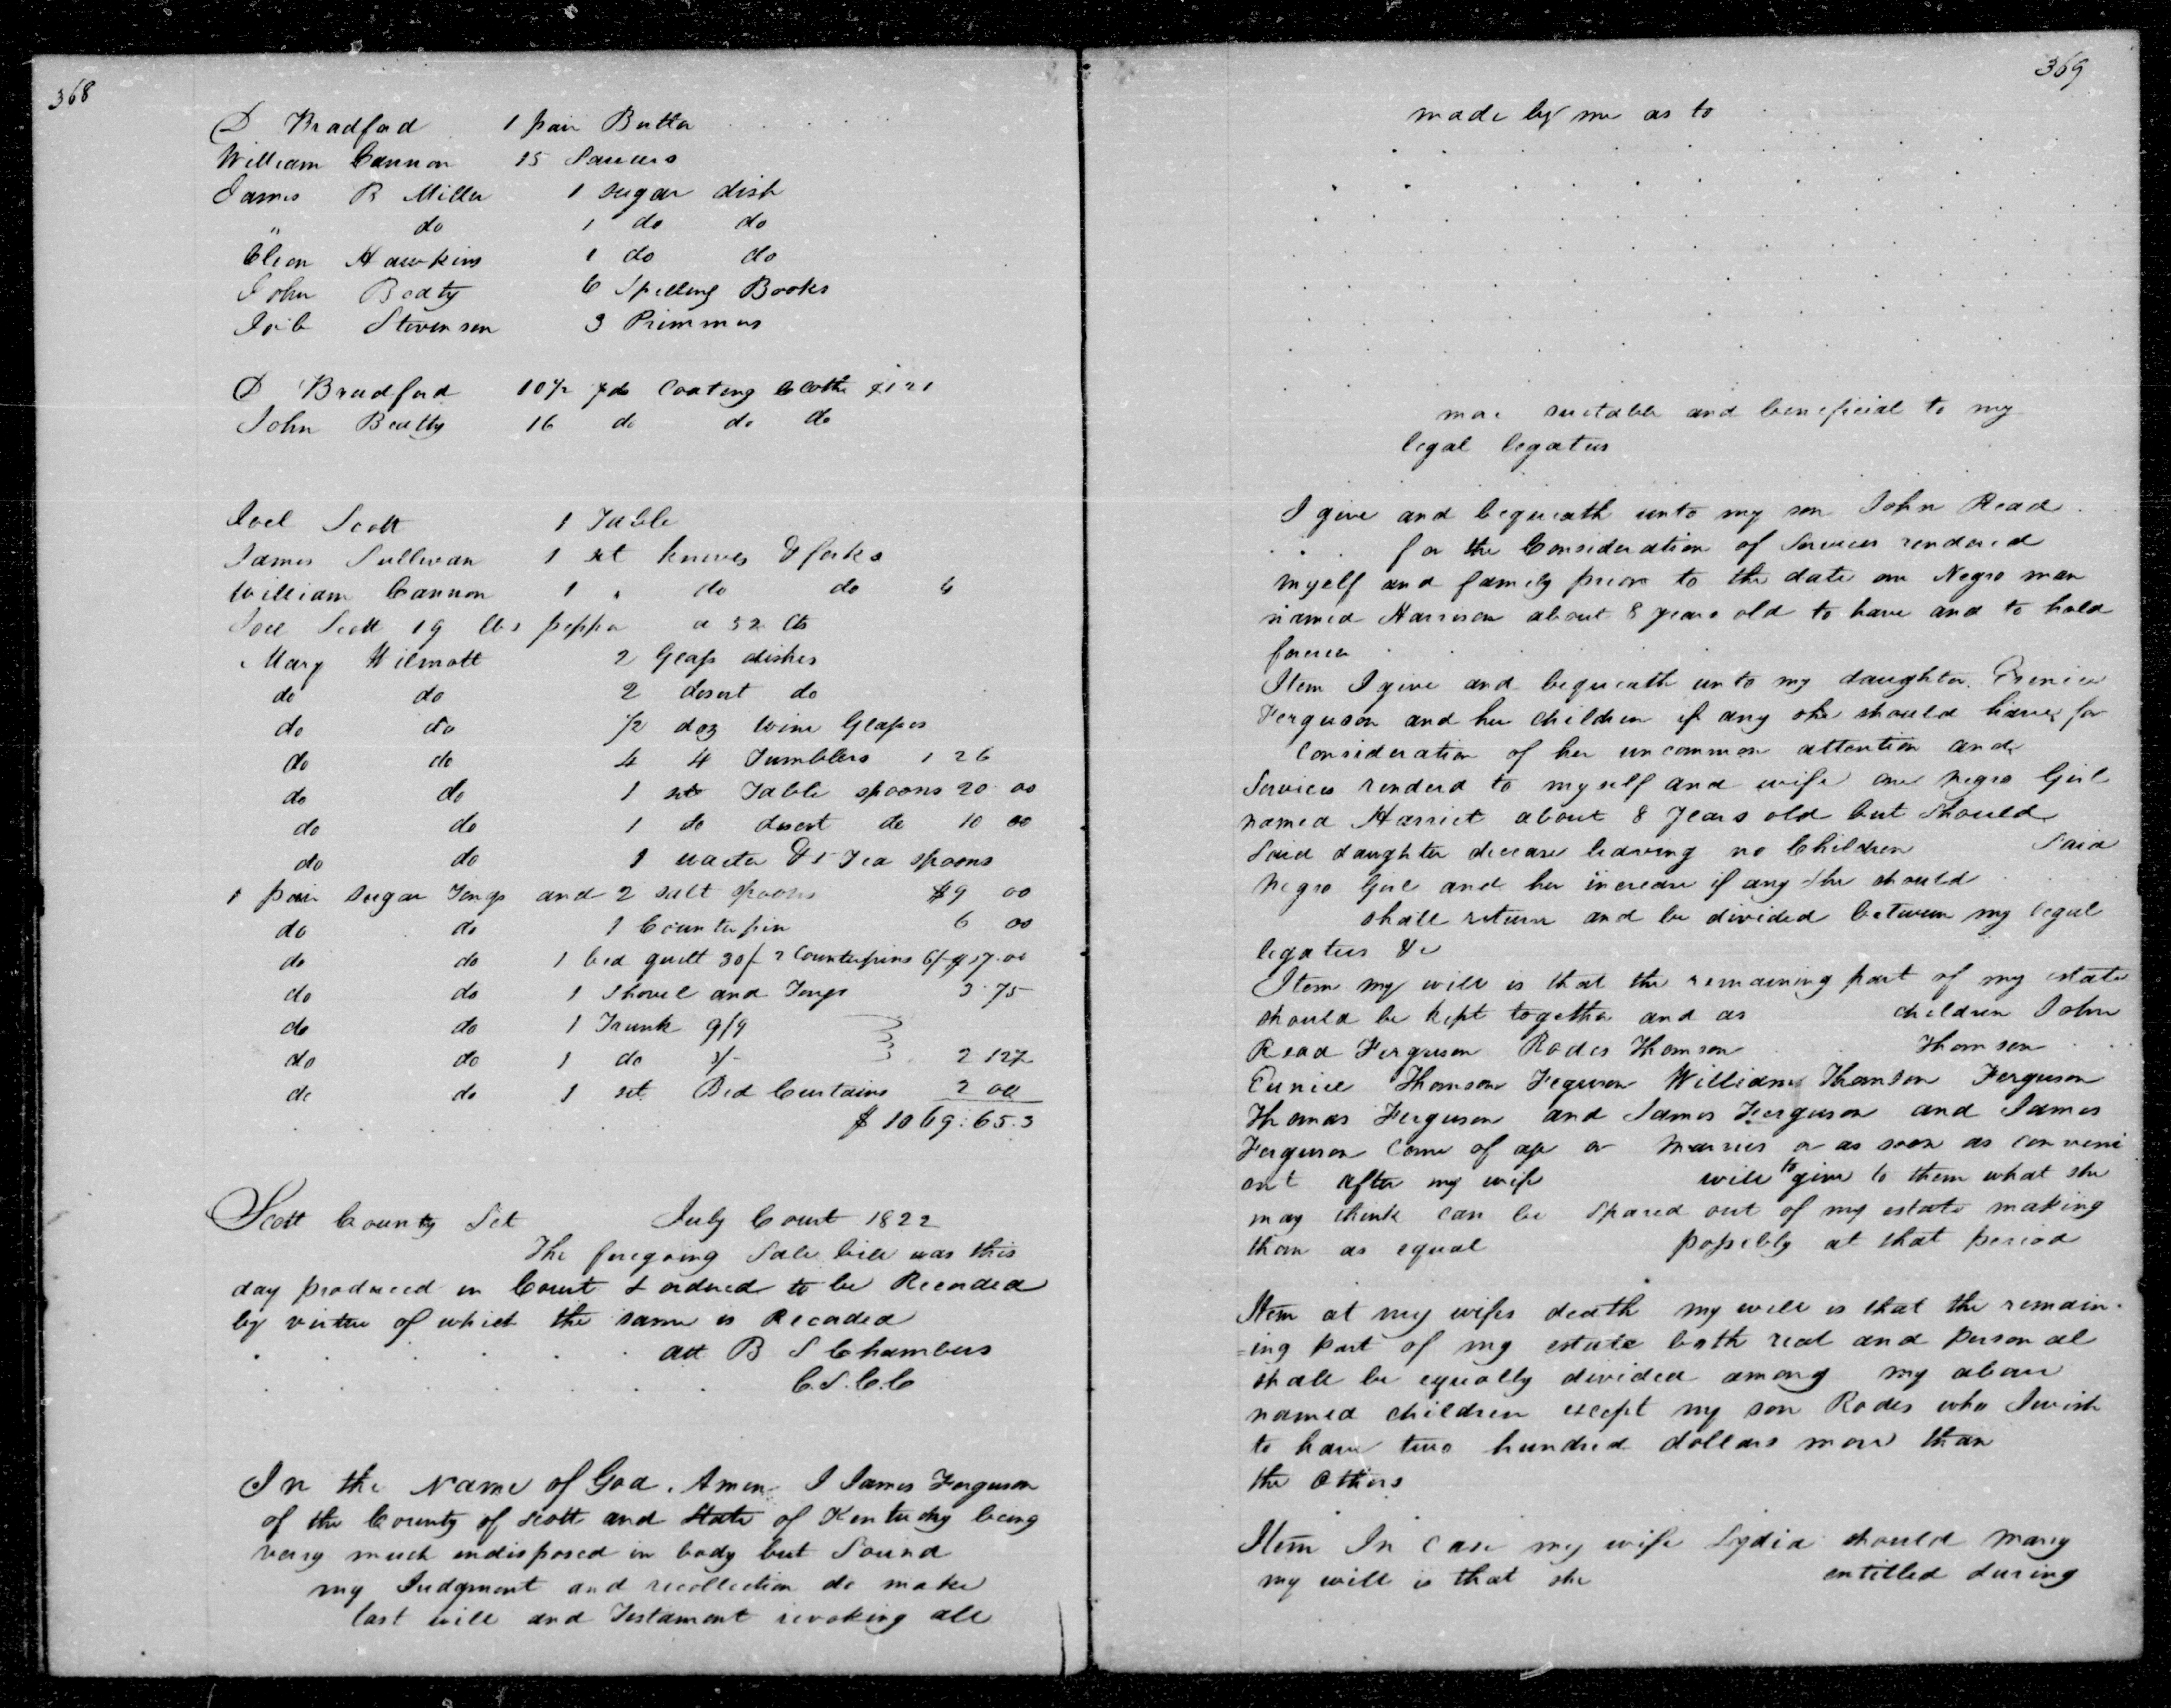 368
D Bradford 1 pair Butter
William Cannon 15 Saucers
James R Miller 1 sugar dish
" do 1 do do
Hawkins 1 do do
John Beaty 6 Spelling Books
Stevenson 3 Primmers
D Bradford 10 1/2 yds Coating Cloth
John Beatty 16 do do do
Joel Scott 1 Table
James Sullivan 1 set knives & forks
William Cannon 1 " do do 6
Joel Scott 19 lbs pepper a 32 Cts
Mary Wilmott 2 Glass dishes
do do 2 desert do
do do 1/2 doz wine Glasses
do do 4 4 Tumblers 1 26
do do 1 set Table spoons 20 00
do do 1 do desert do 10 00
do do 1 waiter & 5 Tea spoons
1 pair sugar Tongs and 2 salt spoons $9 00
do do 1 Counterpin 6 00
do do 1 bed quilt 30/- 2 Counterpins 6/- $17.00
do do 1 Shovel and Tongs 3.75
do do 1 Trunk 9/9
do do 1 do 2 12 1/2
do do 1 set Bed Curtains 2 00
$ 1069:65.3
Scott County Sct July Court 1822
The foregoing Sale bill was this
day produced in Court & ordered to be Recorded
by virtue of which the same is Recorded
att B S Chambers
C.S.C.C
In the Name of God. Amen I James Ferguson
of the County of Scott and State of Kentucky being
very much indisposed in body but Sound
my Judgment and recollection do make
last will and Testament revoking all
369
made by me as to
more suitable and beneficial to my
legal legatees
I give and bequeath unto my son John Read
for the Consideration of Services rendered
myself and family prior to the date one Negro man
named Harrison about 8 years old to have and to hold
forever
Item I give and bequeath unto my daughter
Ferguson and her children if any she should have for
Consideration of her uncommon attention and
Services renderd to myself and wife one negro Girl
named Harriet about 8 years old but Should
Said daughter decease leaving no Children Said
Negro Girl and her increase if any she should
shall return and be divided between my legal
legatees &c
Item my will is that the remaining part of my estate
should be kept together and as children John
Read Ferguson Rodes Thomson Thomson
Eunice Thomson Feguson William Thomson Ferguson
Thomas Ferguson and James Ferguson and James
Ferguson Come of age or Marries or as soon as conveni
ent after my wife will to give to them what she
may think can be Spared out of my estate making
them as equal possibly at that period
Item at my wifes death my will is that the remain-
=ing part of my estate both real and personal
shall be equally divided among my above
named children except my son Rodes who I wish
to have two hundred dollars more than
the Others
Item In Case my wife Lydia should marry
my will is that she entitled during